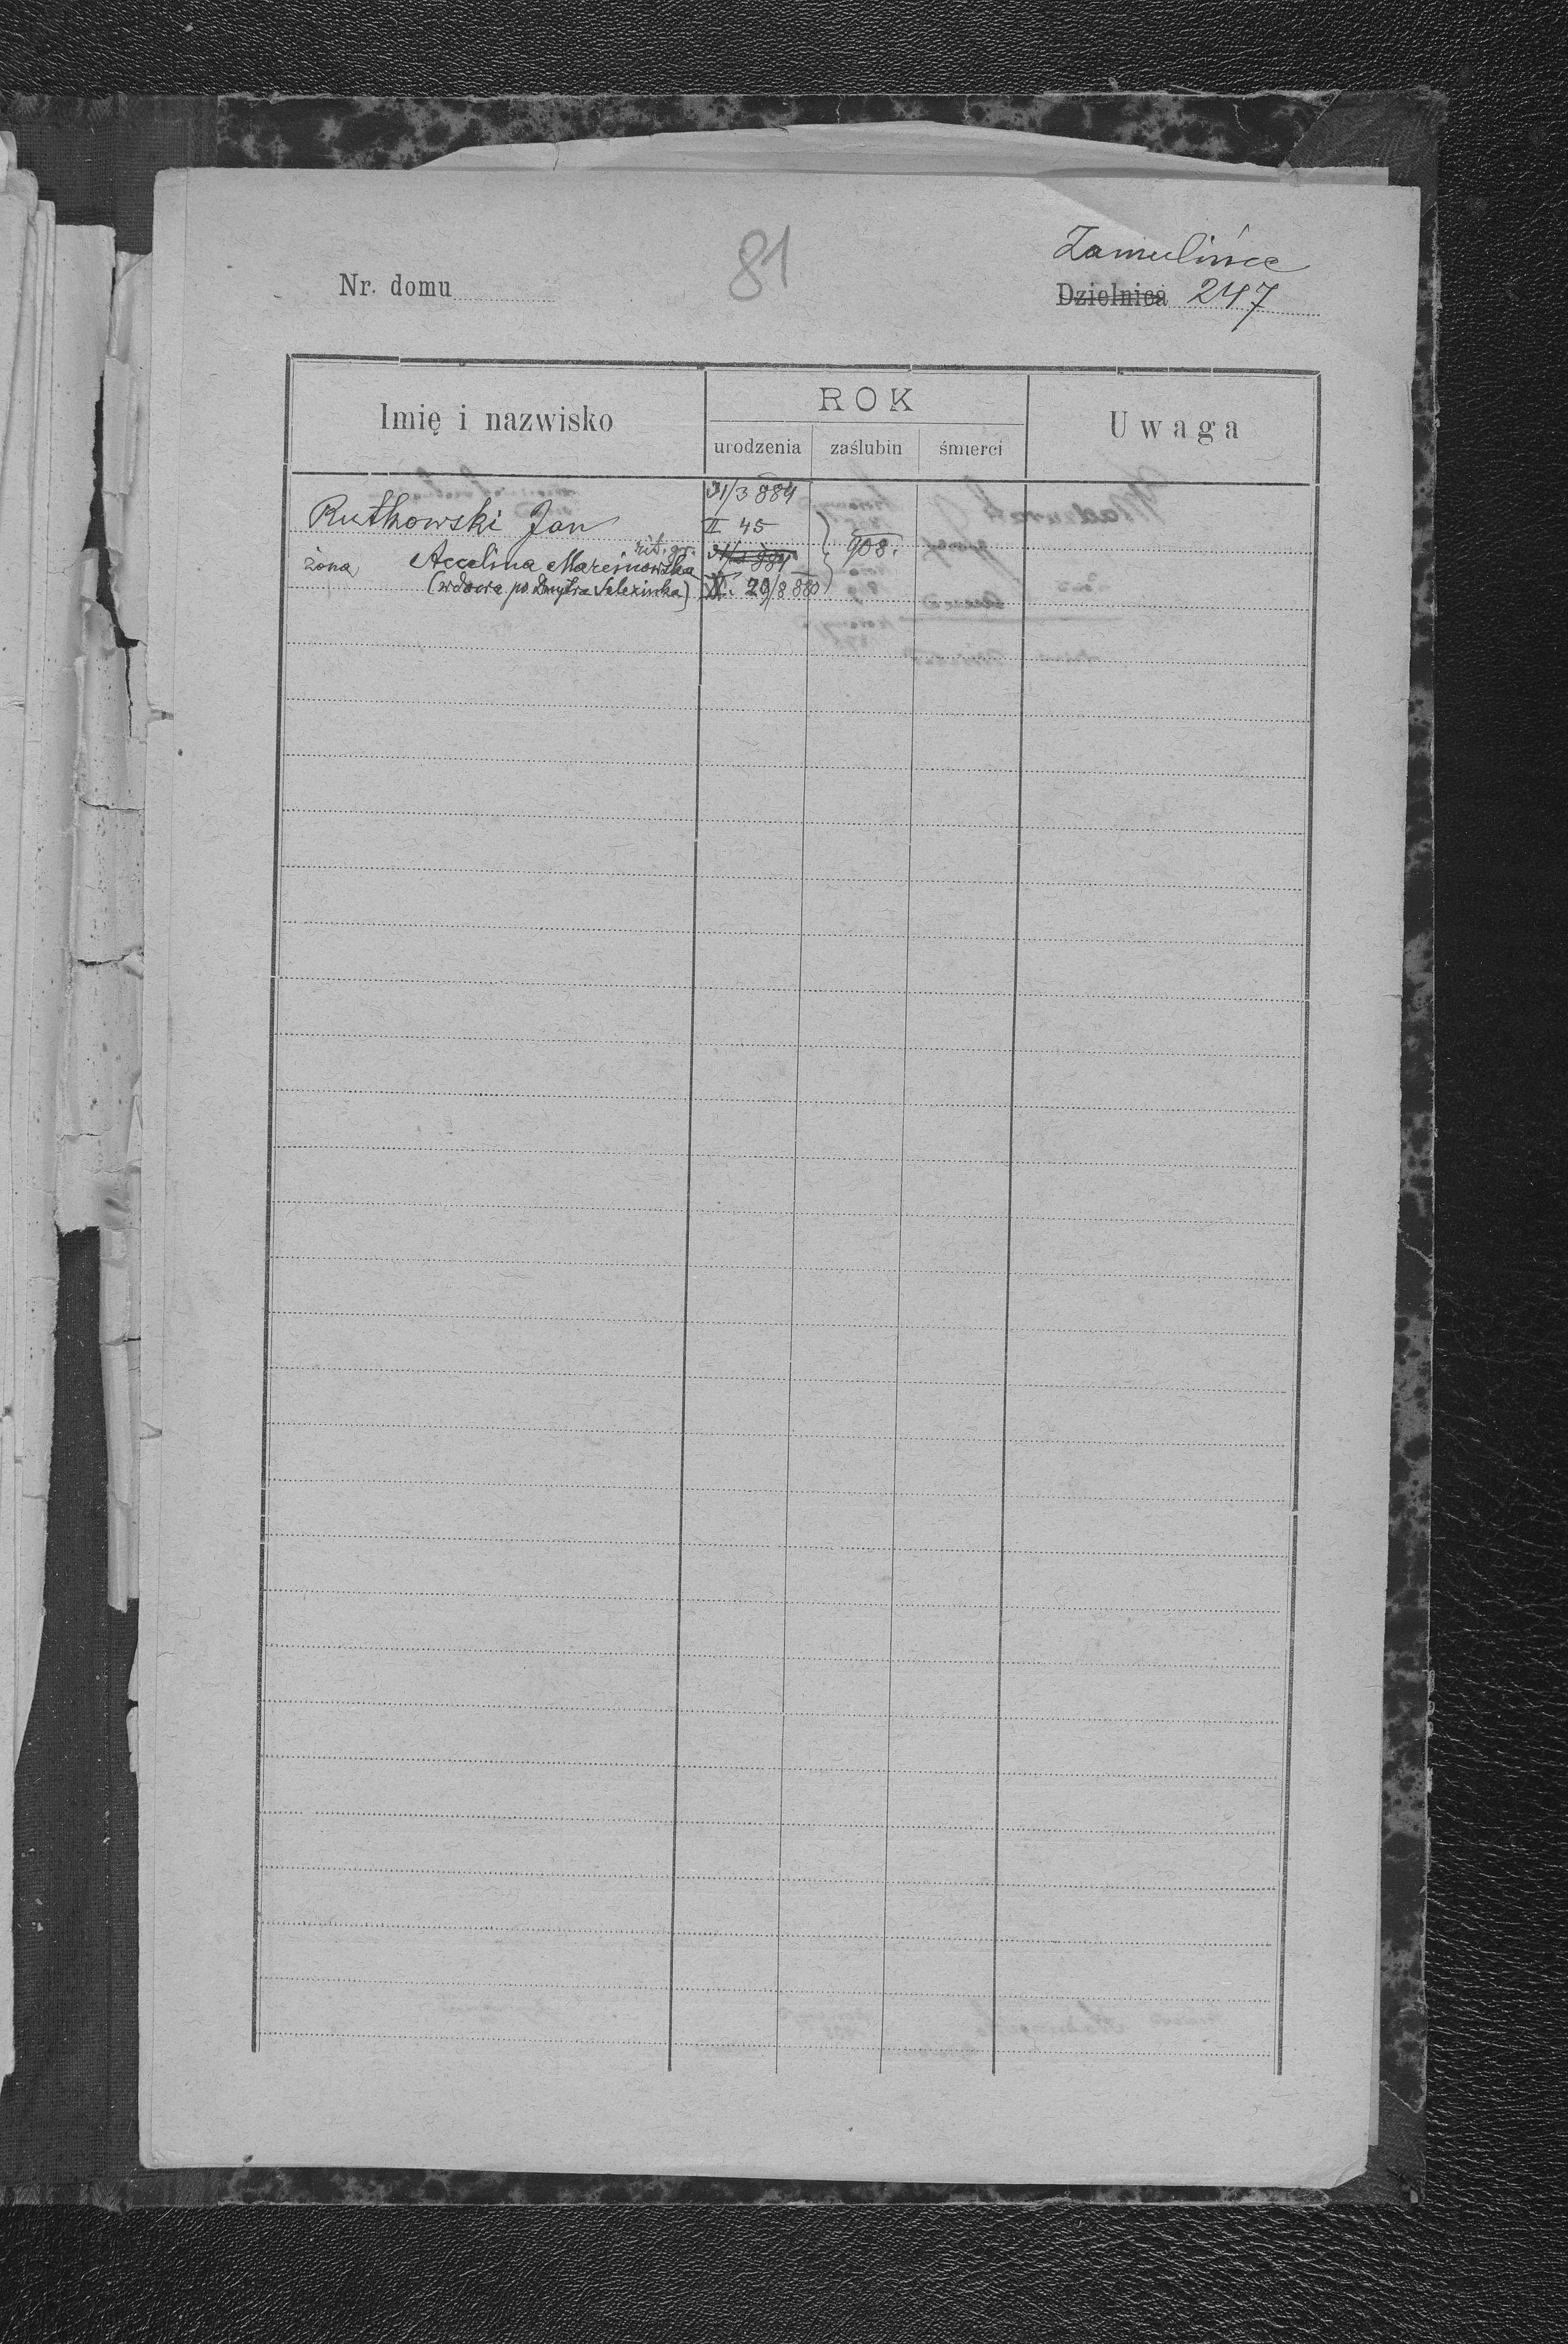 81
Zamulińce
Nr. domu
Dzielnica 247
Imię i nazwisko
ROK
Uwaga
urodzenia
zaślubin
śmierci
31/3 884
Rutkowski Jan
II 45
908.
rit. gr.
żona Accelina Marcinowska
31/3 884
(wdowa po Dmytrze
29/8 880